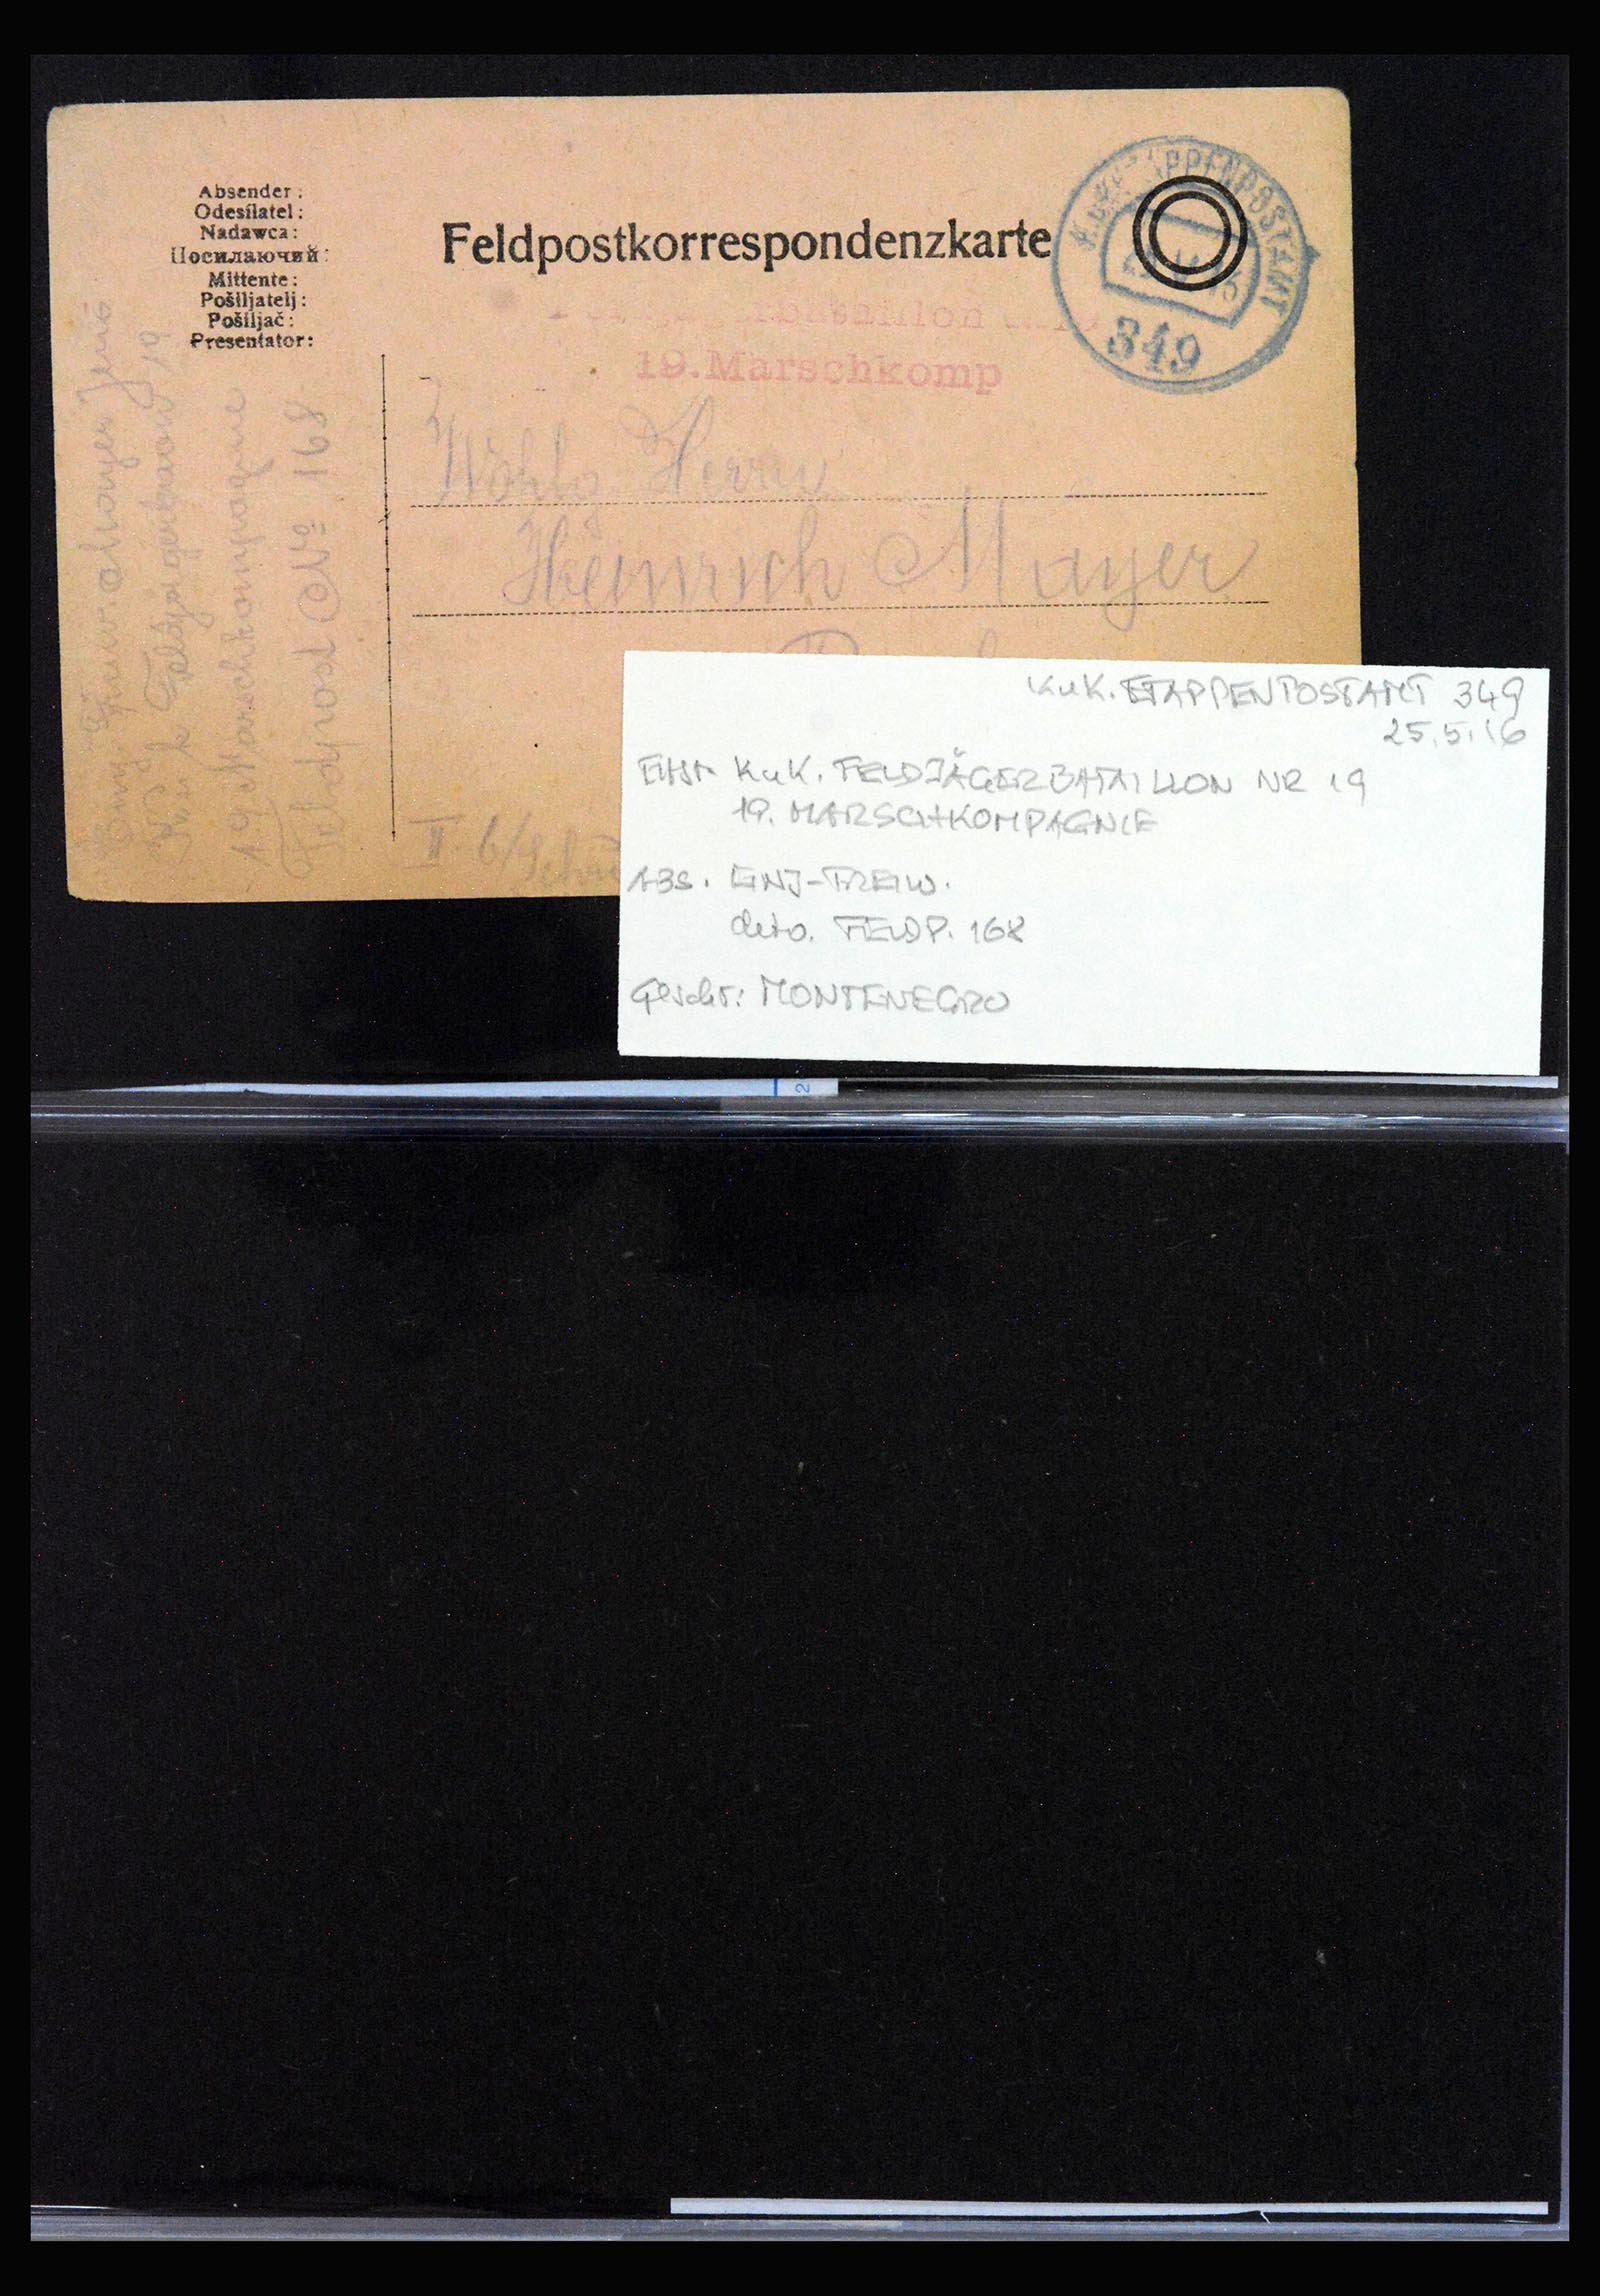 Absender:
Odesílatel:
Nadawca:
Посилаючий:
Mittente:
Pošiljatelj:
Pošiljač:
Presentator:
Feldpostkorrespondenzkarte
ETAPPENPOSTAMT
349
bataillon
19.Marschkomp
Herrn
Heinrich Mayer
II. b/
Mayer Jenö
k u k Feldjägerbaon 19
19 Marschkompagne
Feldpost No 168
KuK. ETAPPENPOSTAMT 349
25.5.16
KuK. FELDJÄGERBATAILLON NR 19
19. MARSCHKOMPAGNIE
ABS. EINJ-FREIW.
deto. FELDP. 168
Geschr: MONTENEGRO
2